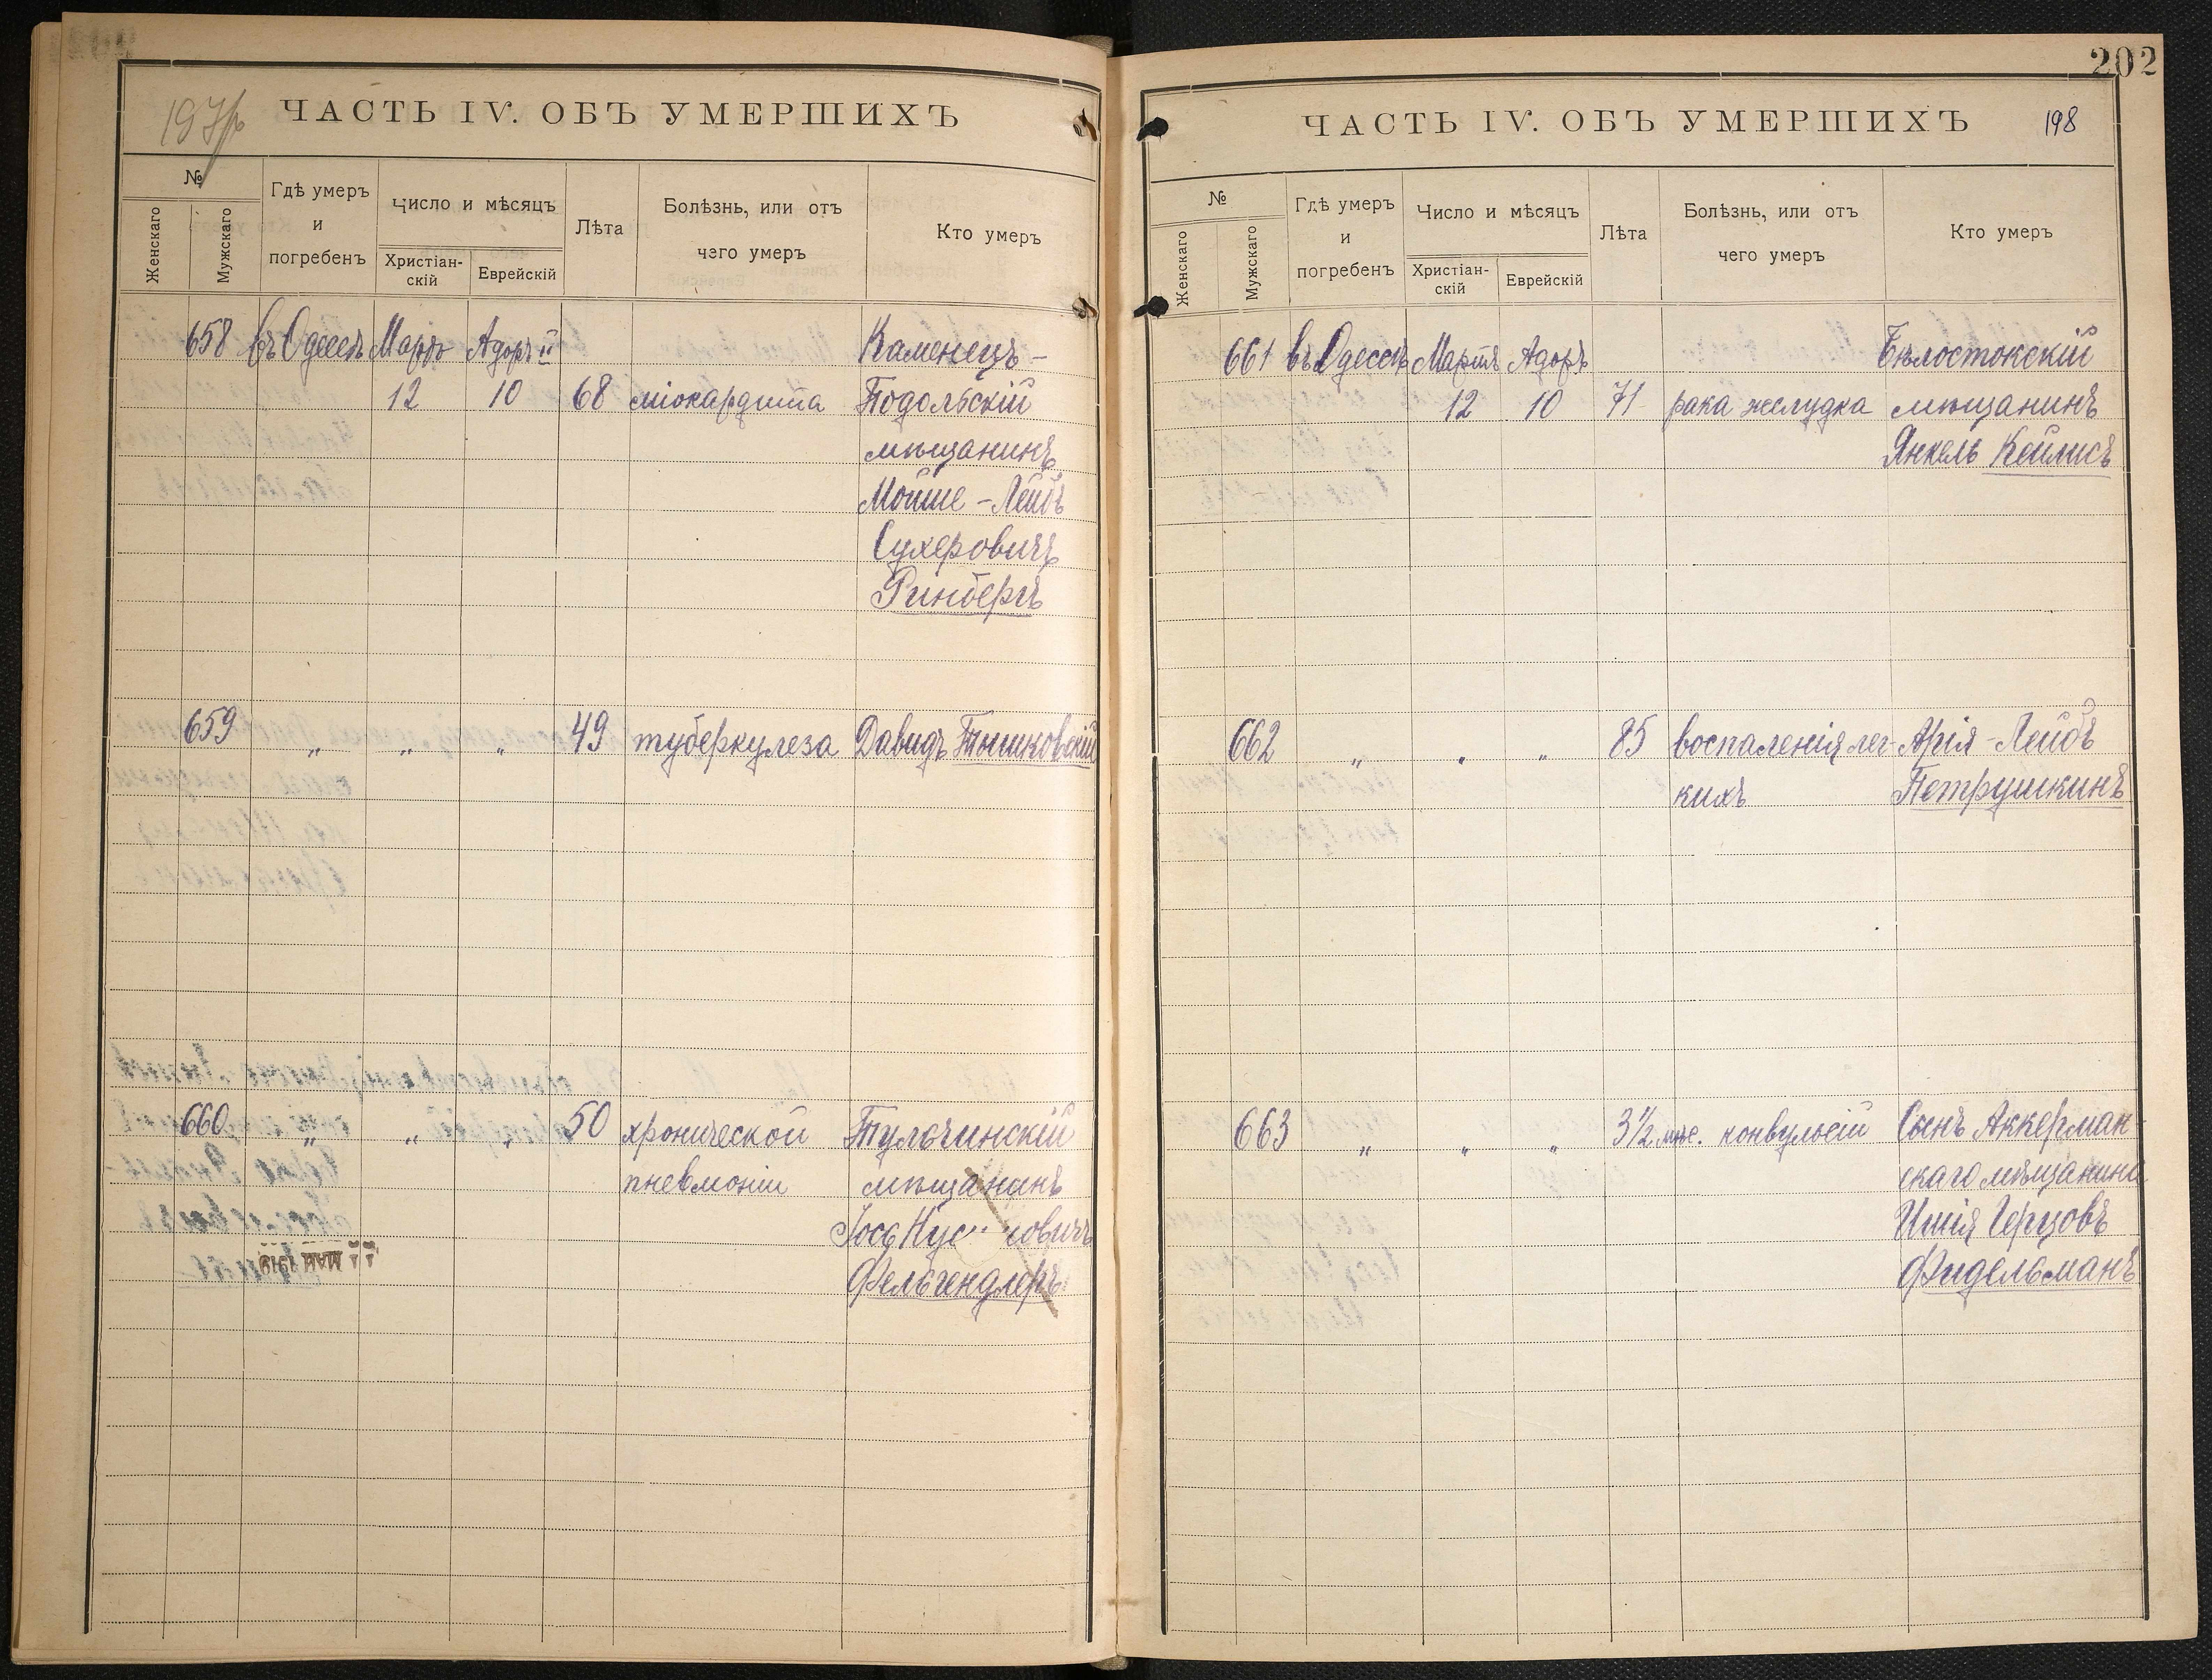 197
ЧАСТЬ IV. ОБЪ УМЕРШИХЪ
№
Женскаго
Мужскаго
Гдѣ умеръ
и
погребенъ
Число и мѣсяцъ
Христіан-
скій
Еврейскій
Лѣта
Болѣзнь, или отъ
чего умеръ
Кто умеръ
658 въ Одессѣ Марта Адоръ II Каменецъ-
12 10 68 міокардита Подольскій
мѣщанинъ
Мойше-Лейбъ
Сухеровичъ
Ринбергъ
659 „ „ „ 49 туберкулеза Давидъ
660 „ „ „ 50 хронической Тульчинскій
пневмоніи мѣщанинъ
Фельгендлеръ
МАЙ 1919
202
ЧАСТЬ IV. ОБЪ УМЕРШИХЪ 198
№
Женскаго
Мужскаго
Гдѣ умеръ
и
погребенъ
Число и мѣсяцъ
Христіан-
скій
Еврейскій
Лѣта
Болѣзнь, или отъ
чего умеръ
Кто умеръ
661 въ Одессѣ Марта Адоръ Бѣлостокскій
12 10 71 рака желудка мѣщанинъ
Янкель Кейлисъ
662 „ „ „ 85 воспаленія лег- Арія-Лейбъ
кихъ Петрушкинъ
663 „ „ „ 3½ мѣс. конвульсій Сынъ Аккерман-
скаго мѣщанина
Ишія Герцовъ
Фидельманъ